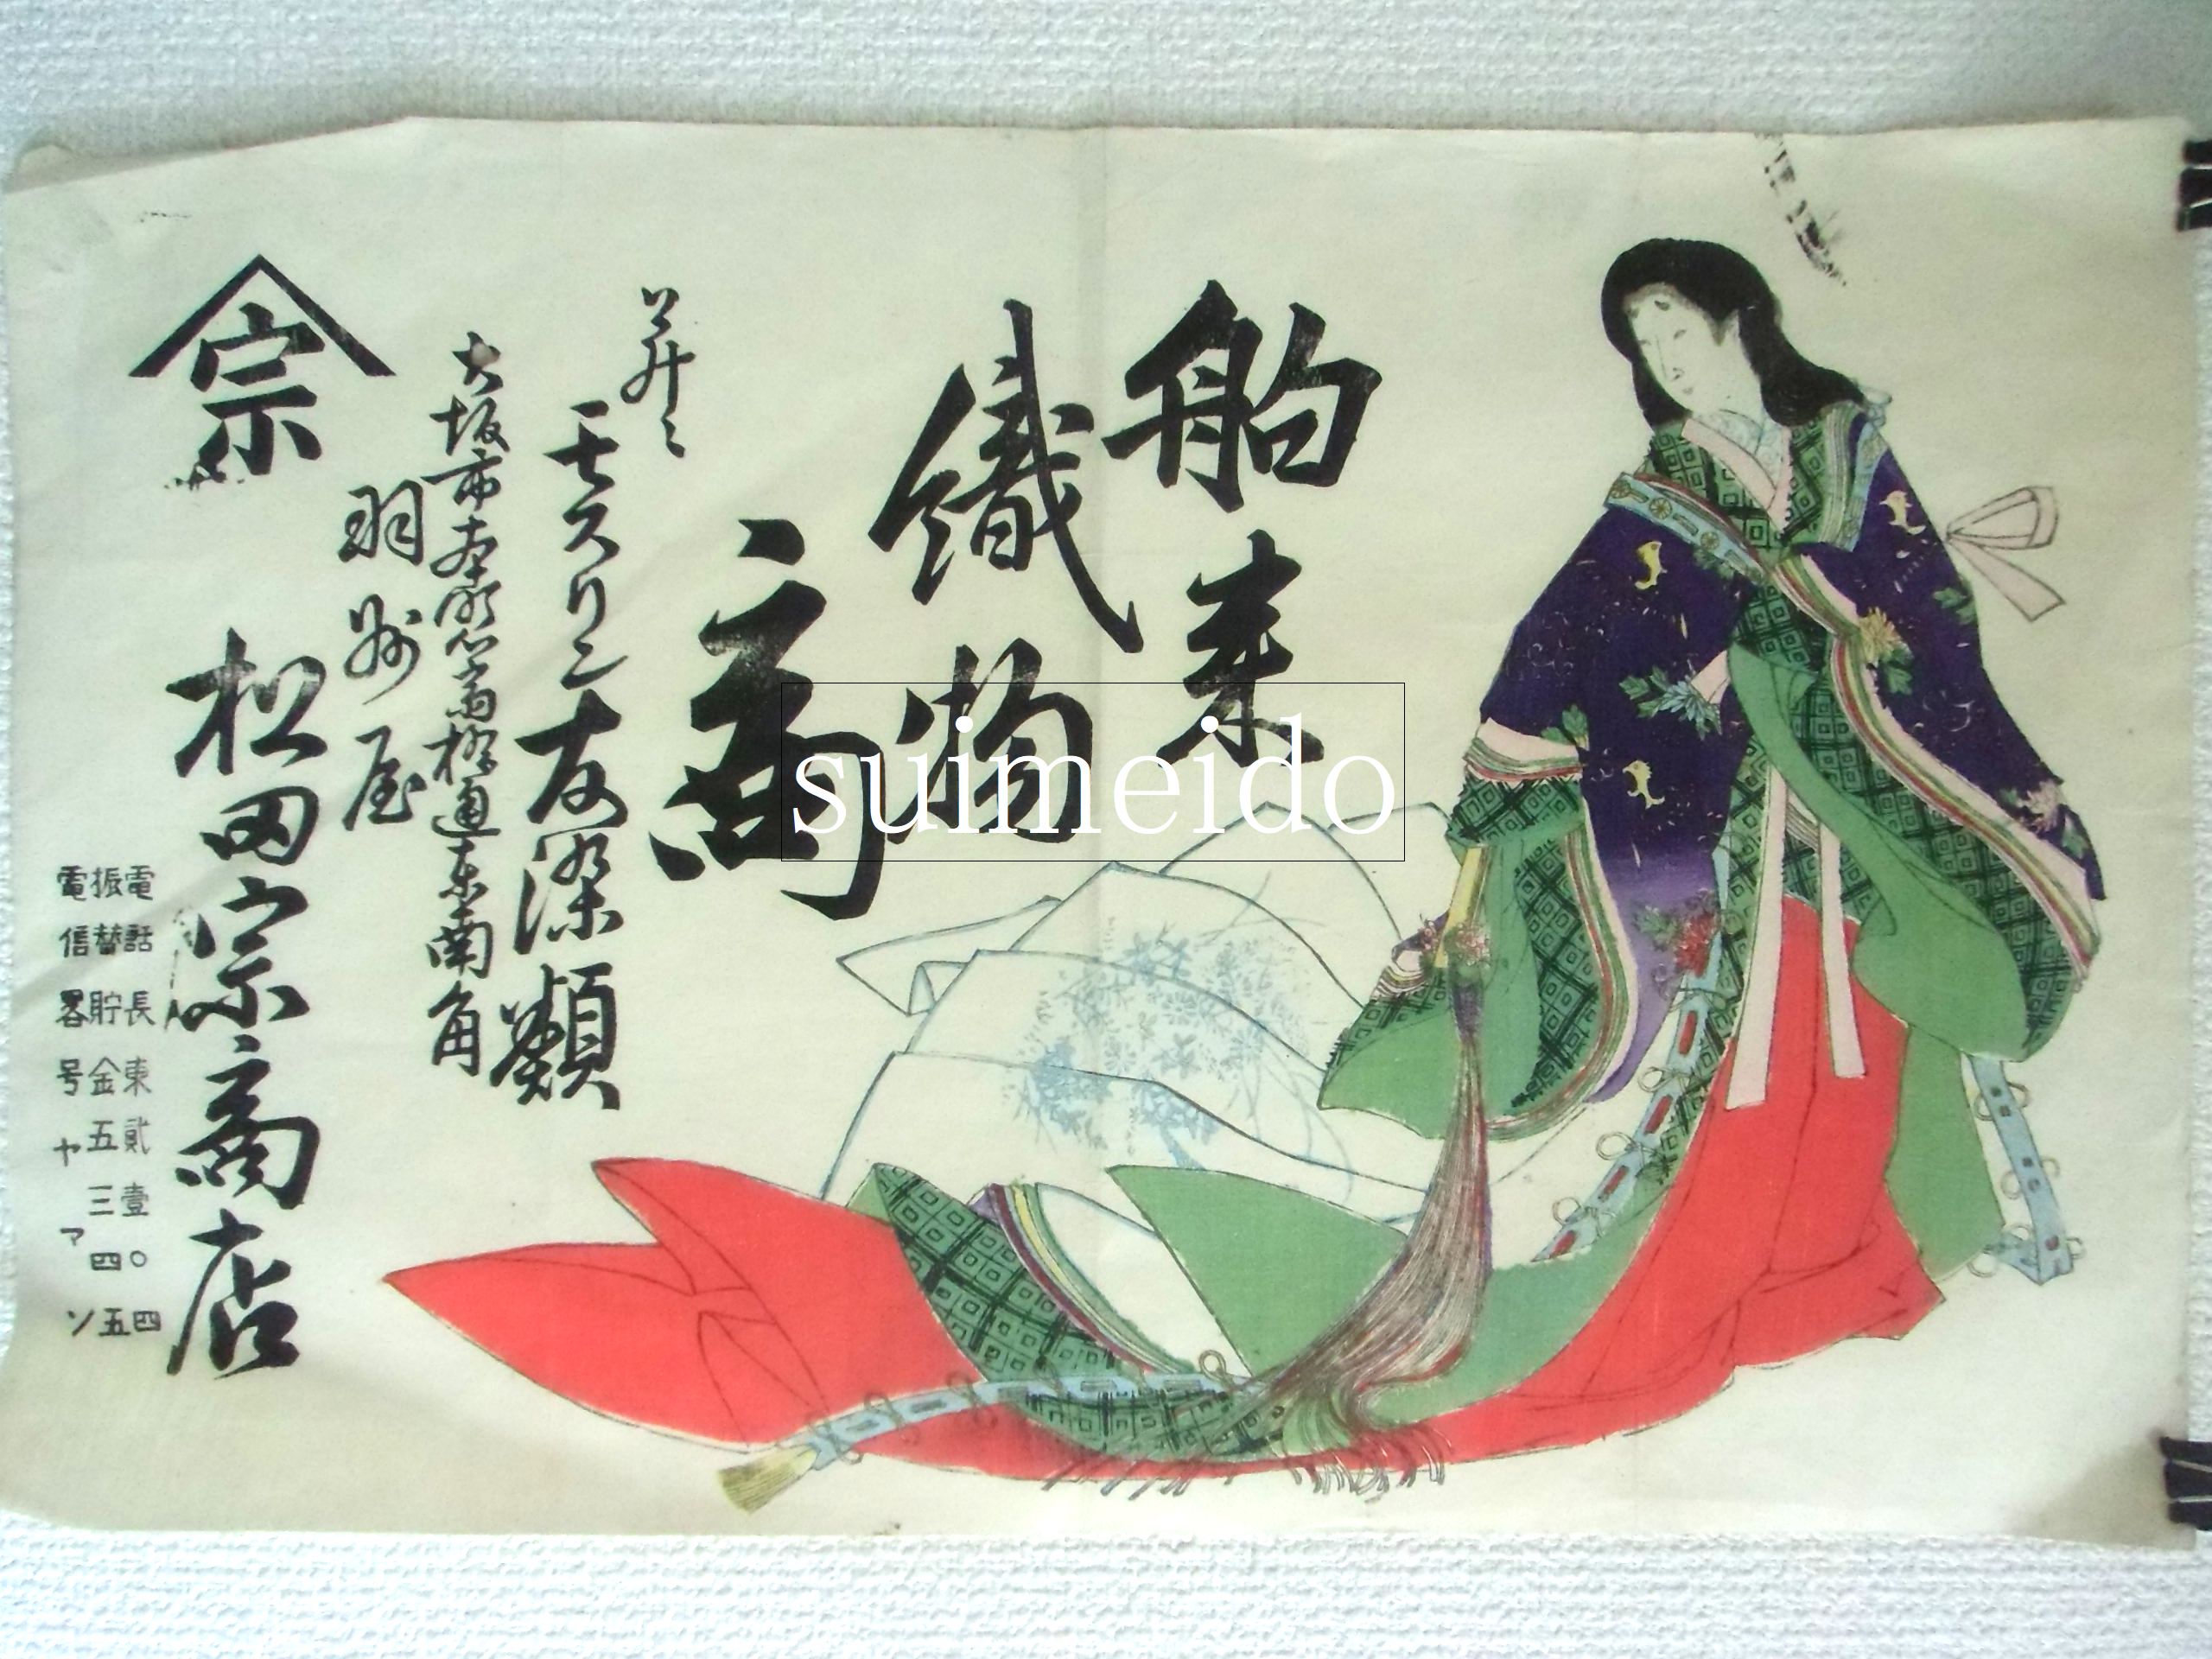 舶来
織物
商
并ニ
モスリン友染類
大坂市本町心斎橋通東南角
羽州屋
宗
松田宗商店
電話長東貳壹〇四
振替貯金五三四五
電信畧号ヤマソ
suimeido